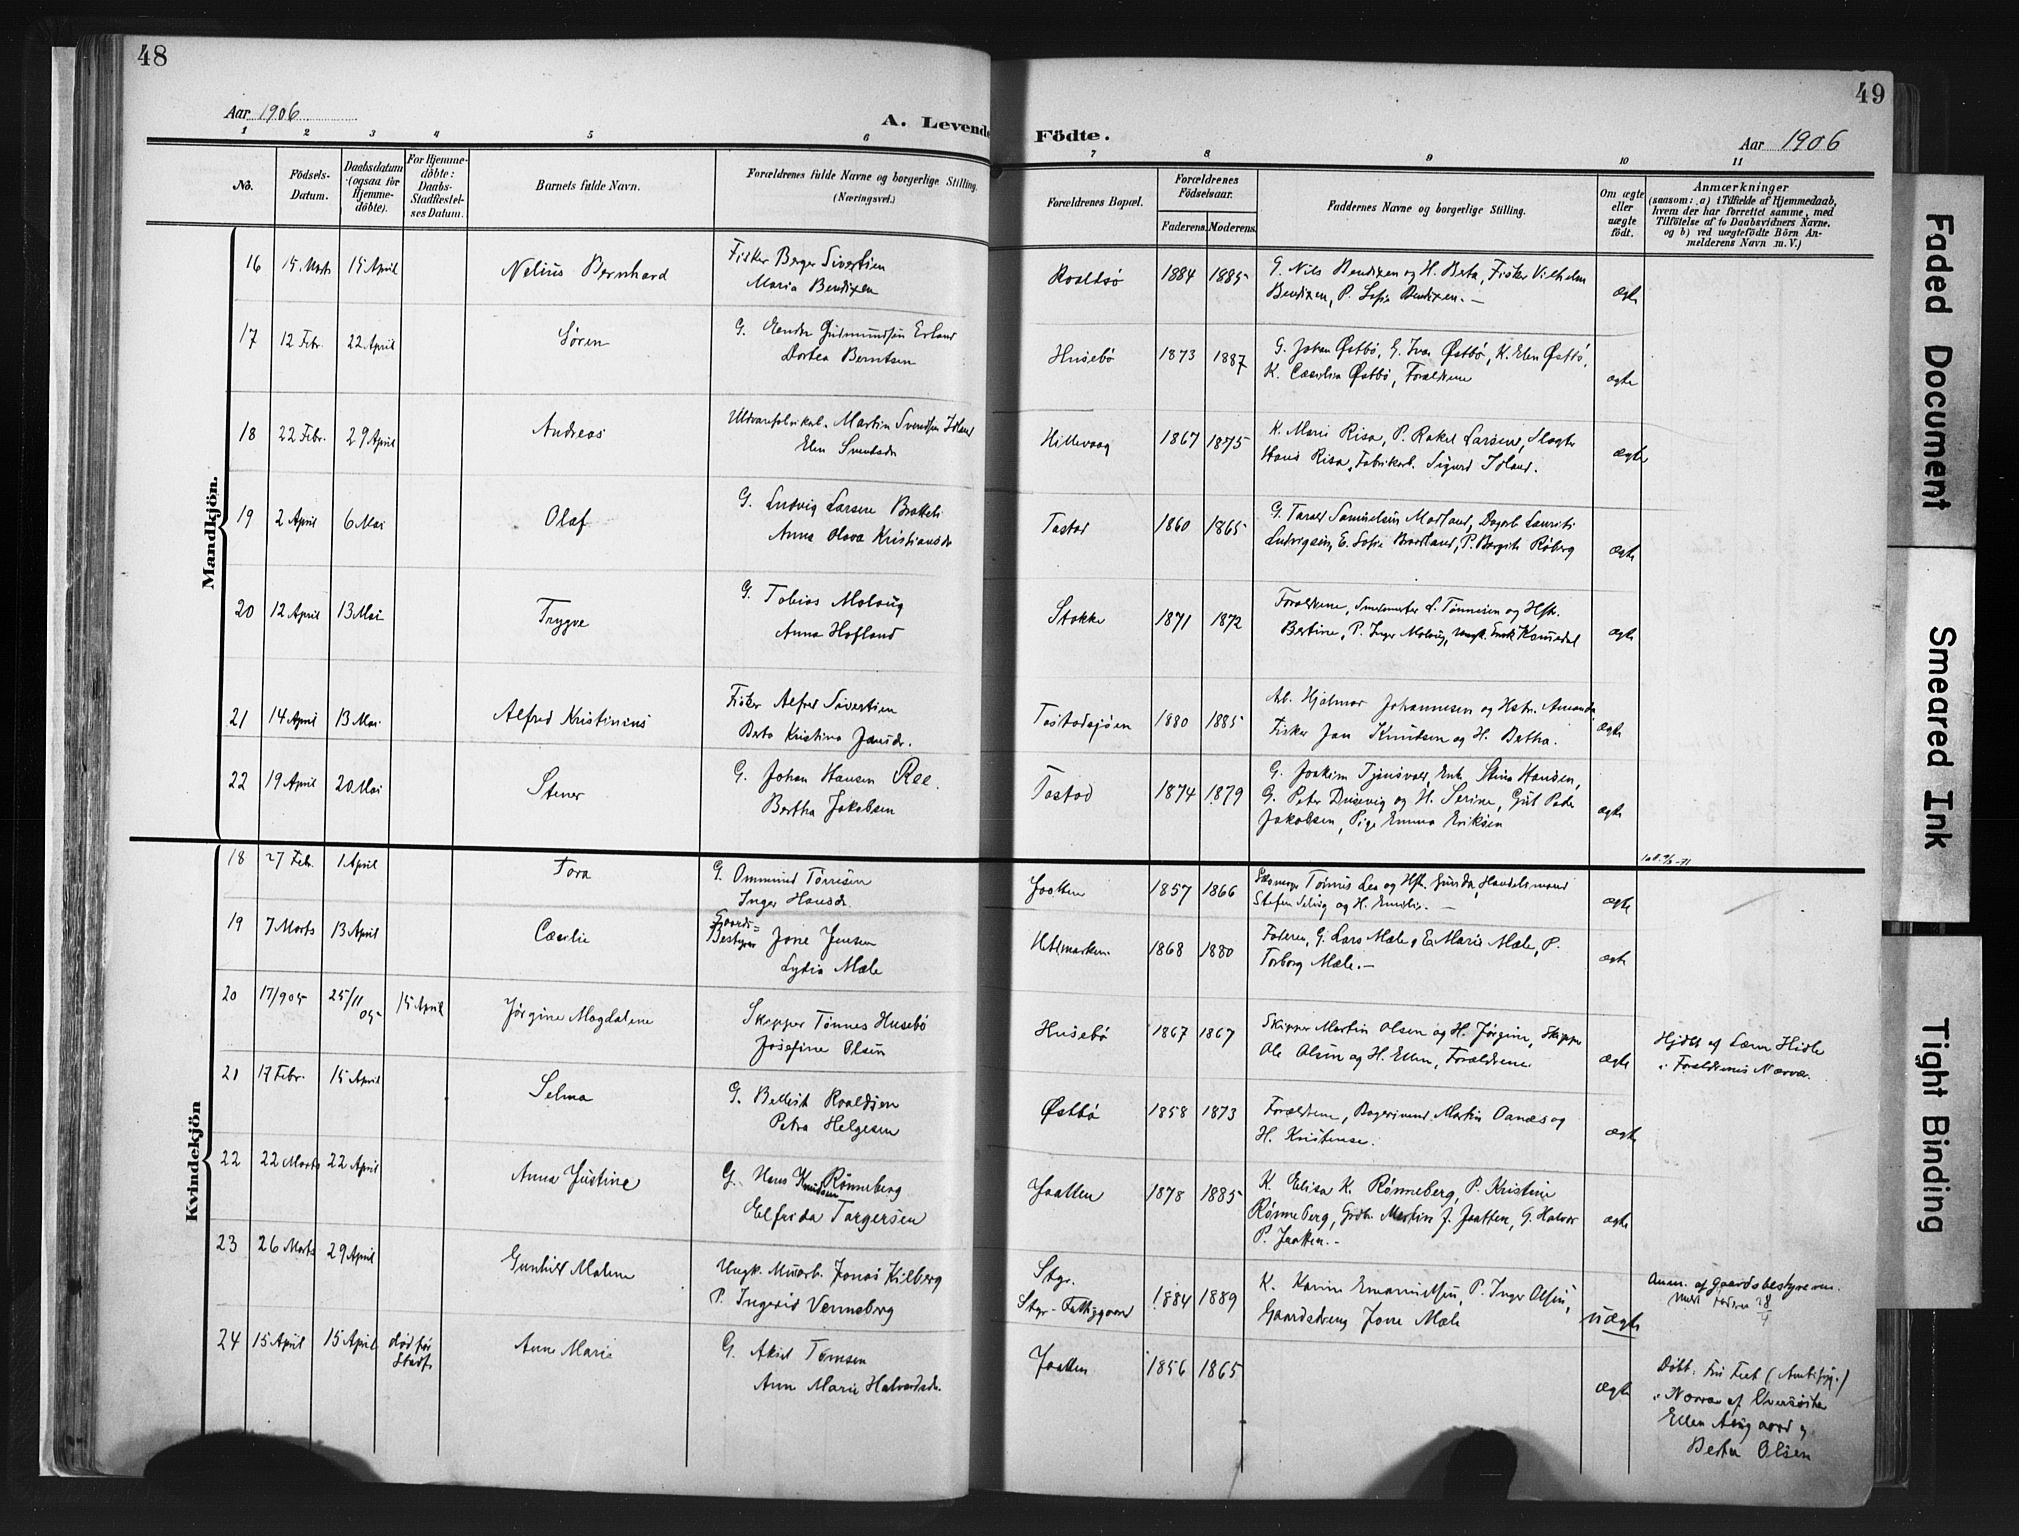 48
49
Aar 1906
A. Levende Födte.
Aar 1906
1 2 3 4 5 6 7 8 9 10 11
No.
Födsels-Datum.
Daabsdatum (ogsaa for Hjemme-döbte).
For Hjemme-döbte: Daabs-Stadfæstel-ses Datum.
Barnets fulde Navn.
Forældrenes fulde Navne og borgerlige Stilling.
(Næringsvei.)
Forældrenes Bopæl.
Forældrenes Födselsaar.
Faderens. Moderens.
Faddernes Navne og borgerlige Stilling.
Om ægte eller uægte födt.
Anmærkninger
(saasom: a) i Tilfælde af Hjemmedaab,
hvem der har forrettet samme, med
Tilföielse af to Daabsvidners Navne.
og b) ved uægtefödte Börn An-
melderens Navn m. V.)
Mandkjön.
16 15 Marts 15 April Nelius Bernhard
Fisker Berger Sivertsen
Maria Bendixen
Roaldsø 1884 1885
G. Nils Bendixen og H. Berta, Fisker Vilhelm
Bendixen, P. Sofie Bendixen. —
ægte
17 12 Febr. 22 April Søren
G. Gudmundsen Erland
Dortea Berntsen
Husebø 1873 1887
G. Johan Østbø, G. Ivar Østbø, K. Elen Østbø,
K. Cæcilia Østbø, Forældrene
ægte
18 22 Febr. 29 April Andreas
Uldvarefabrikarb. Martin Svendsen
Elen
Hillevaag 1867 1875
K. Marie Risa, P. Rakel Larsen, Slagter
Hans Risa, Fabrikarb. Sigurd
ægte
19 2 April 6 Mai Olaf
G. Ludvig Larsen
Anna Olava Kristiansdr
Tastad 1860 1865
G. Tarald Samuelsen Madland, Dagarb. Laurits
Ludvigsen, E. Sofie P. Bergit Røberg
ægte
20 12 April 13 Mai Trygve
G. Tobias Malaug
Anna Hofland
Stokke 1871 1872
Forældrene, L. Tønnesen og Hst.
Bertine, P. Inger Malaug,
ægte
21 14 April 13 Mai Alfred Kristinius
Fisker Alfred Sivertsen
Berta Kristina Jansdr.
Tastadsjøen 1880 1885
Arb. Hjalmar Johannesen og Hstr. Amanda,
Fisker Jan Knudsen og H. Bertha.
ægte
22 19 April 20 Mai Stener
G. Johan Hansen Ree.
Bertha Jakobsen
Tastad 1874 1879
G. Joakim Tjensvold, Enk. Stina Hansen,
G. Peter Dusevig og H. Serine, Gut Peder
Jakobsen, Pige Emma Eriksen
ægte
Kvindekjön
18 27 Febr. 1 April Tora
G. Ommund Tønnesen
Inger Hansdr.
Jaatten 1857 1866
Tønnes Lea og Hst. Gunda, Handelsmand
Stefen Selvig og H. Emilie. —
ægte
19 7 Marts 13 April Cæcilie
Gaards=
Bestyrer Jone Jensen
Lydia Mæle
Utmarken 1868 1880
Faderen, G. Lars Mæle, E. Marie Mæle, P.
Torborg Mæle. —
ægte
20 17/9 05 25/11 05 15 April Jørgine Magdalene
Skipper Tønnes Husebø
Josefine Olsen
Husebø 1867 1867
Skipper Martin Olsen og H. Jørgine, Skipper
Ole Olsen og H. Ellen, Forældrene
ægte
Hjdbt af Lærer Hidle
i Forældrenes Nærvær.
21 17 Febr. 15 April Selma
G. Bellest Roaldsen
Petra Helgesen
Østbø 1858 1873
Forældrene, Bagersvend Martin Oanæs og
H. Kristense.
ægte
22 22 Marts 22 April Anna Justine
G. Hans Knudsen Rønneberg
Elfrida Torgersen
Jaatten 1878 1885
K. Elisa K. Rønneberg, P. Kristine
Rønneberg, Grdb. Martin J. Jaatten, G. Halvor
P. Jaatten. —
ægte
23 26 Marts 29 April Gunhild Malene
Ungk. Murarb. Jonas Kilberg
P. Ingerid Venneberg
Stgr.
Stgr. Fattiggaard 1884 1889
K. Karine Emanuelsen, P. Inger Olsen,
Gaardsdreng Jone Mæle
uægte
Anm. af Gaardsbestyreren.
28/4
24 15 April 15 April død før Stadf.
Anne Marie
G. Aksel Tomsen
Ann Marie Halvardsdr.
Jaatten 1856 1865
ægte
Døbt. Fru Feet
i Nærvær af
Ellen og
Berta Olsen
Faded Document
Smeared Ink
Tight Binding